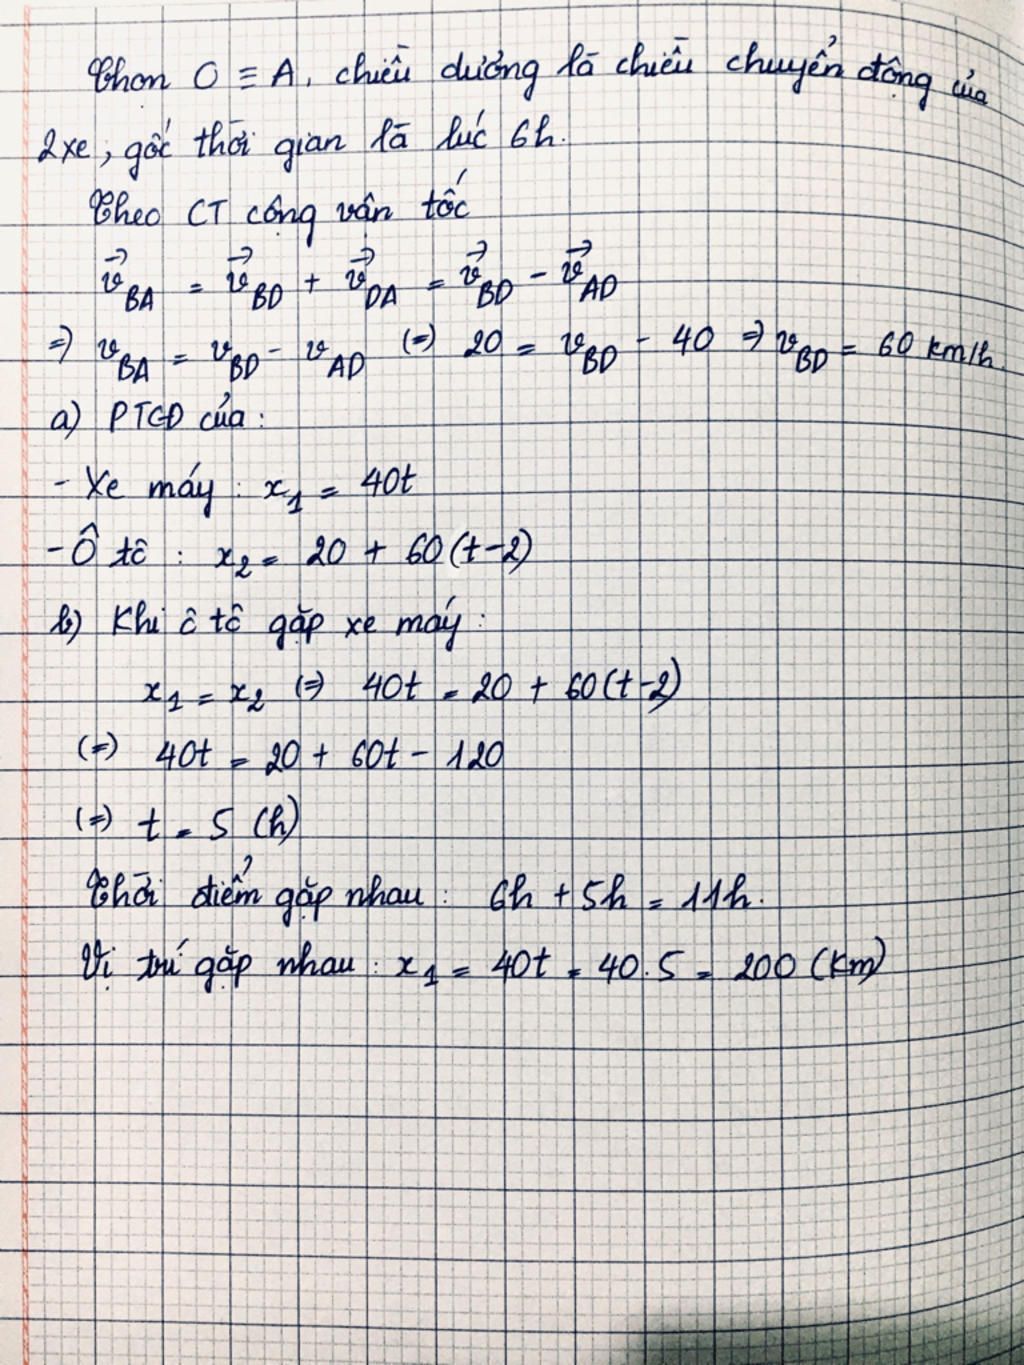 Chọn O ≡ A, chiều dương là chiều chuyển động của
2 xe, gốc thời gian là lúc 6h.
Theo CT cộng vận tốc
v⃗_BA = v⃗_BD + v⃗_DA = v⃗_BD - v⃗_AD
=> v_BA = v_BD - v_AD (=) 20 = v_BD - 40 => v_BD = 60 km/h.
a) PTCĐ của:
- Xe máy : x₁ = 40t
- Ô tô : x₂ = 20 + 60(t-2)
b) Khi ô tô gặp xe máy :
x₁ = x₂ (=) 40t = 20 + 60(t-2)
(=) 40t = 20 + 60t - 120
(=) t = 5 (h)
Thời điểm gặp nhau : 6h + 5h = 11h.
Vị trí gặp nhau : x₁ = 40t = 40.5 = 200 (km)